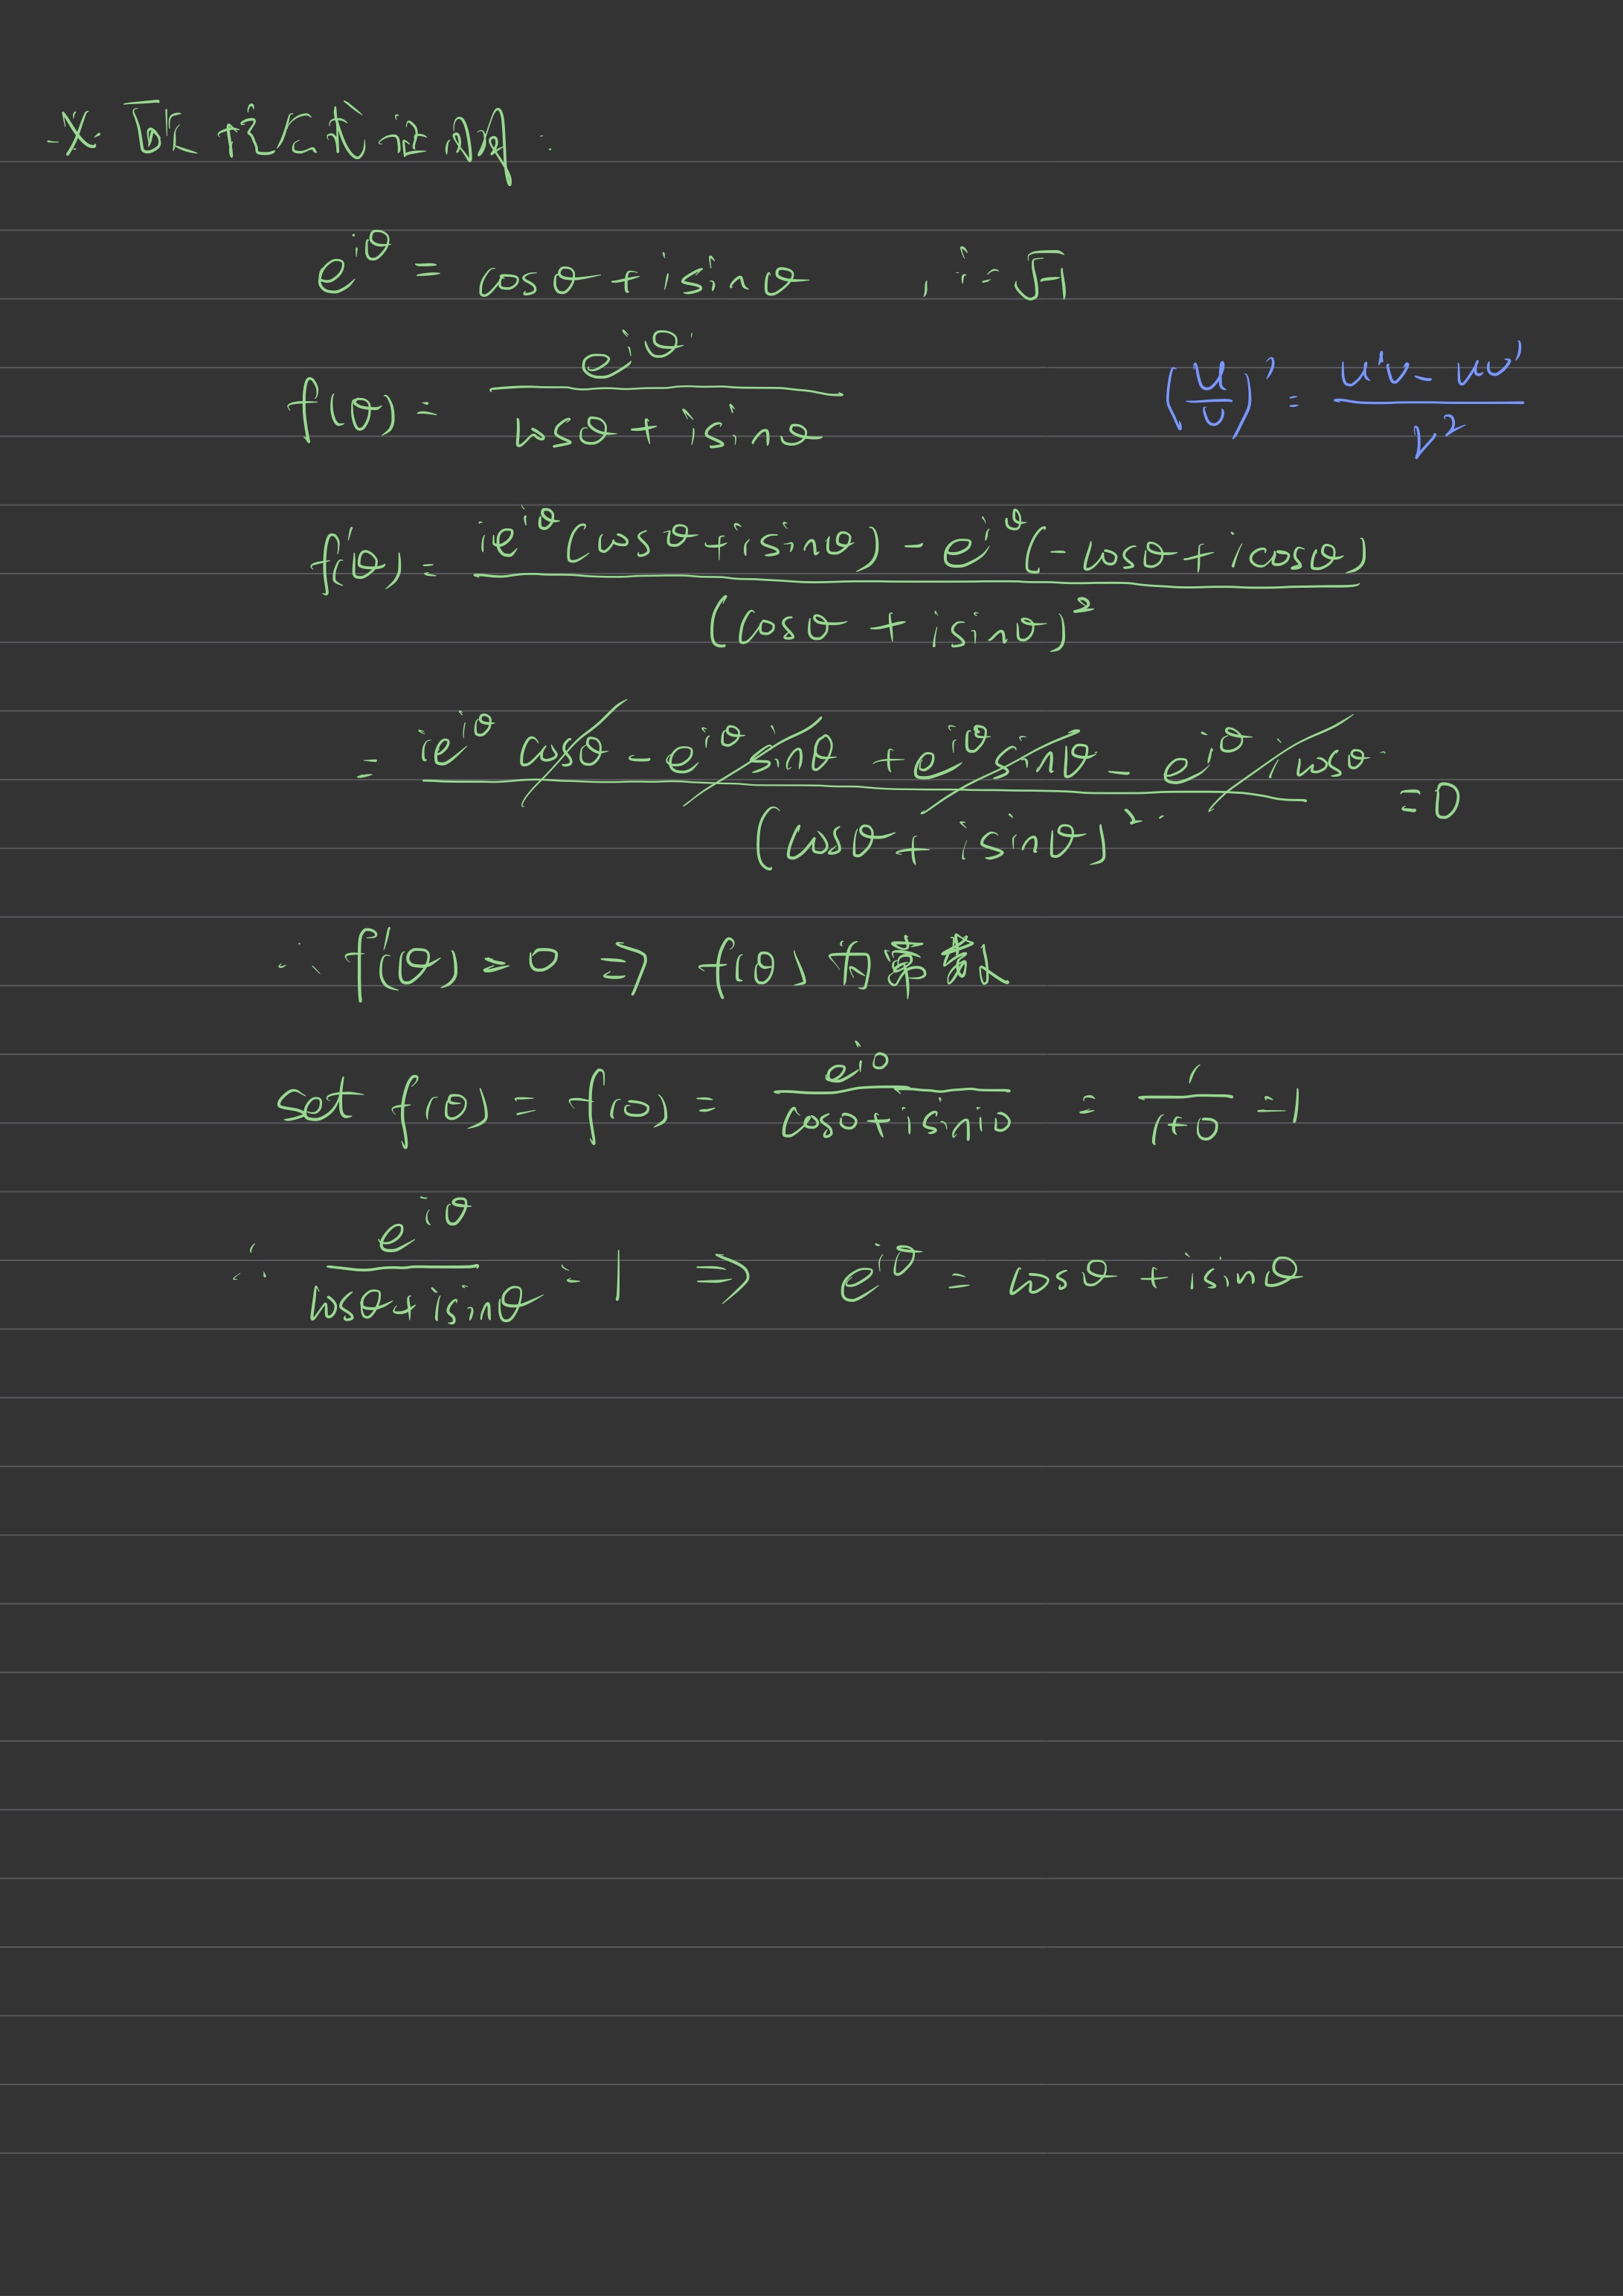 ※ 歐拉公式証明
e^{iθ} = cosθ + isinθ , i = √-1
f(θ) = e^{iθ} / (cosθ + isinθ)
(u/v)' = (u'v - uv') / v²
f'(θ) = (ie^{iθ}(cosθ + isinθ) - e^{iθ}(-cosθ + icosθ)) / (cosθ + isinθ)²
= (ie^{iθ}cosθ - e^{iθ}sinθ + e^{iθ}sinθ - e^{iθ}icosθ) / (cosθ + isinθ)² = 0
∴ f'(θ) = 0 ⇒ f(θ) 为常數
set f(θ) = f(0) = e^{i0} / (cos0 + isin0) = 1 / (1+0) = 1
∴ e^{iθ} / (cosθ + isinθ) = 1 ⇒ e^{iθ} = cosθ + isinθ